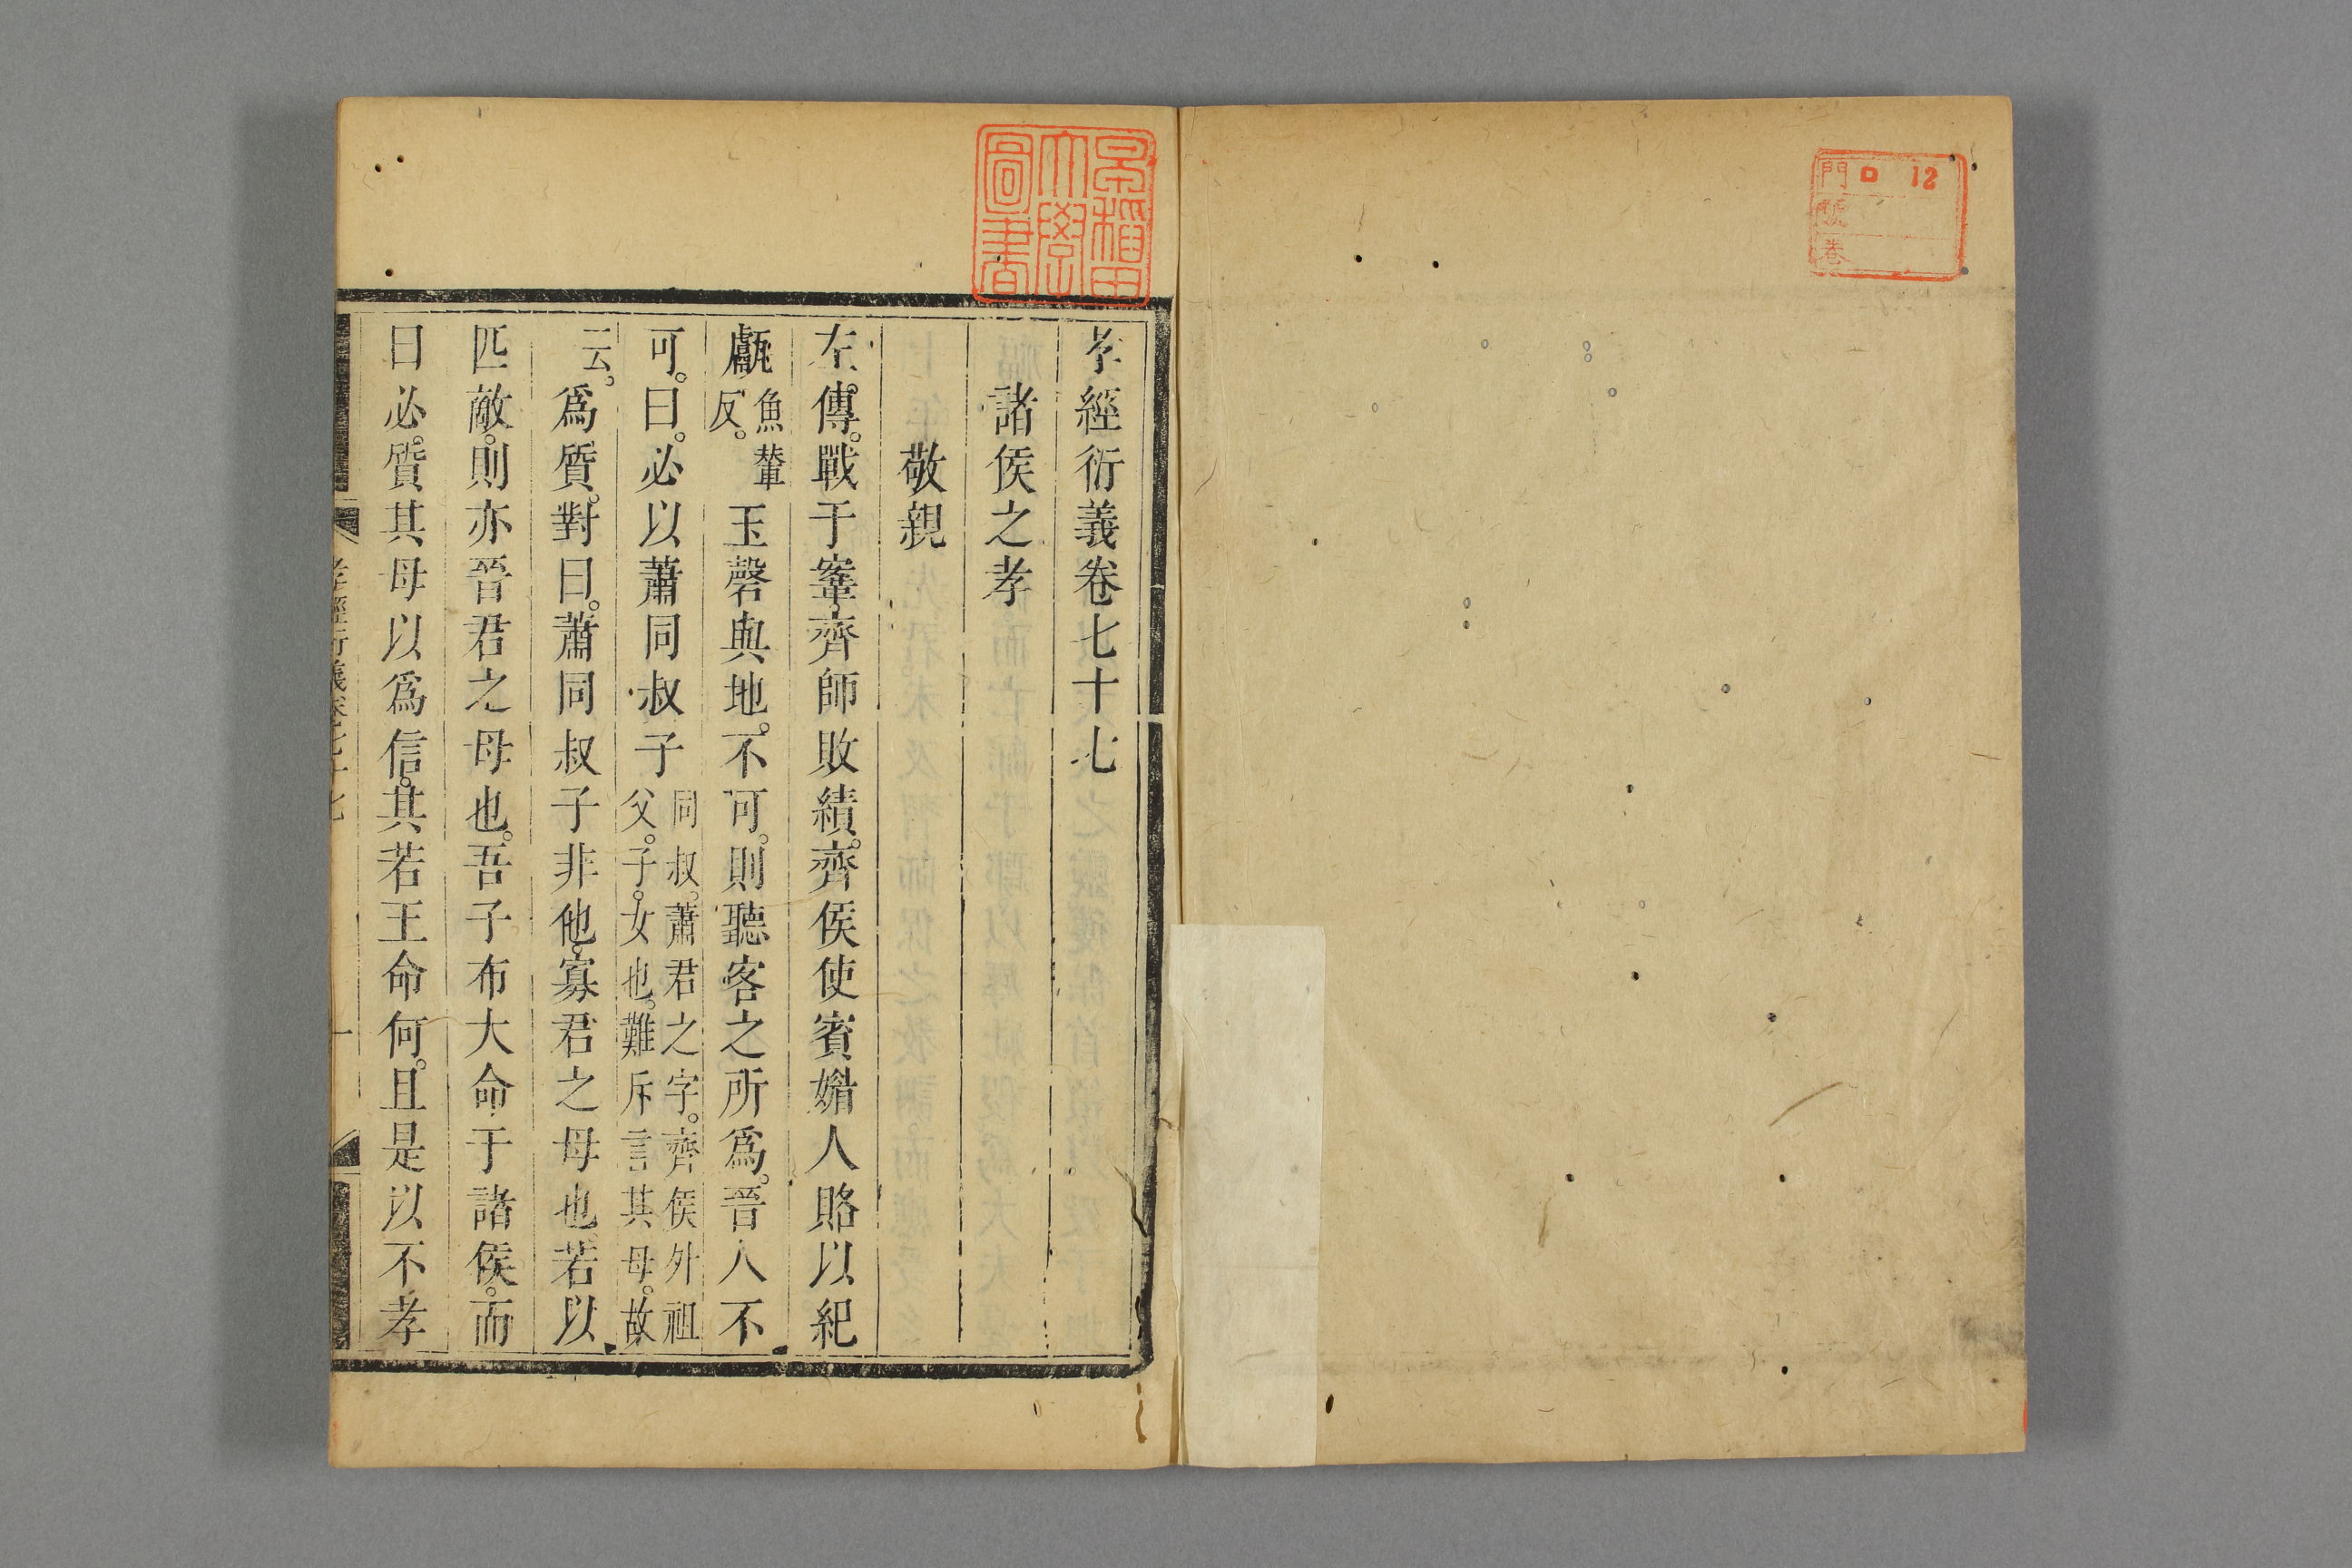 門 ロ 12
號
卷
早稲田
大學
圖書
孝經衍義卷七十七
諸侯之孝
敬親
左傳。戰于鞌。齊師敗績。齊侯使賓媚人賂以紀
甗魚輦反。玉磬與地。不可。則聽客之所爲。晉人不
可。曰。必以蕭同叔子同叔。蕭君之字。齊侯外祖父。子。女也。難斥言其母。故
云。爲質。對曰。蕭同叔子非他。寡君之母也。若以
匹敵。則亦晉君之母也。吾子布大命于諸侯。而
曰必質其母以爲信。其若王命何。且是以不孝
孝經衍義卷七十七 一